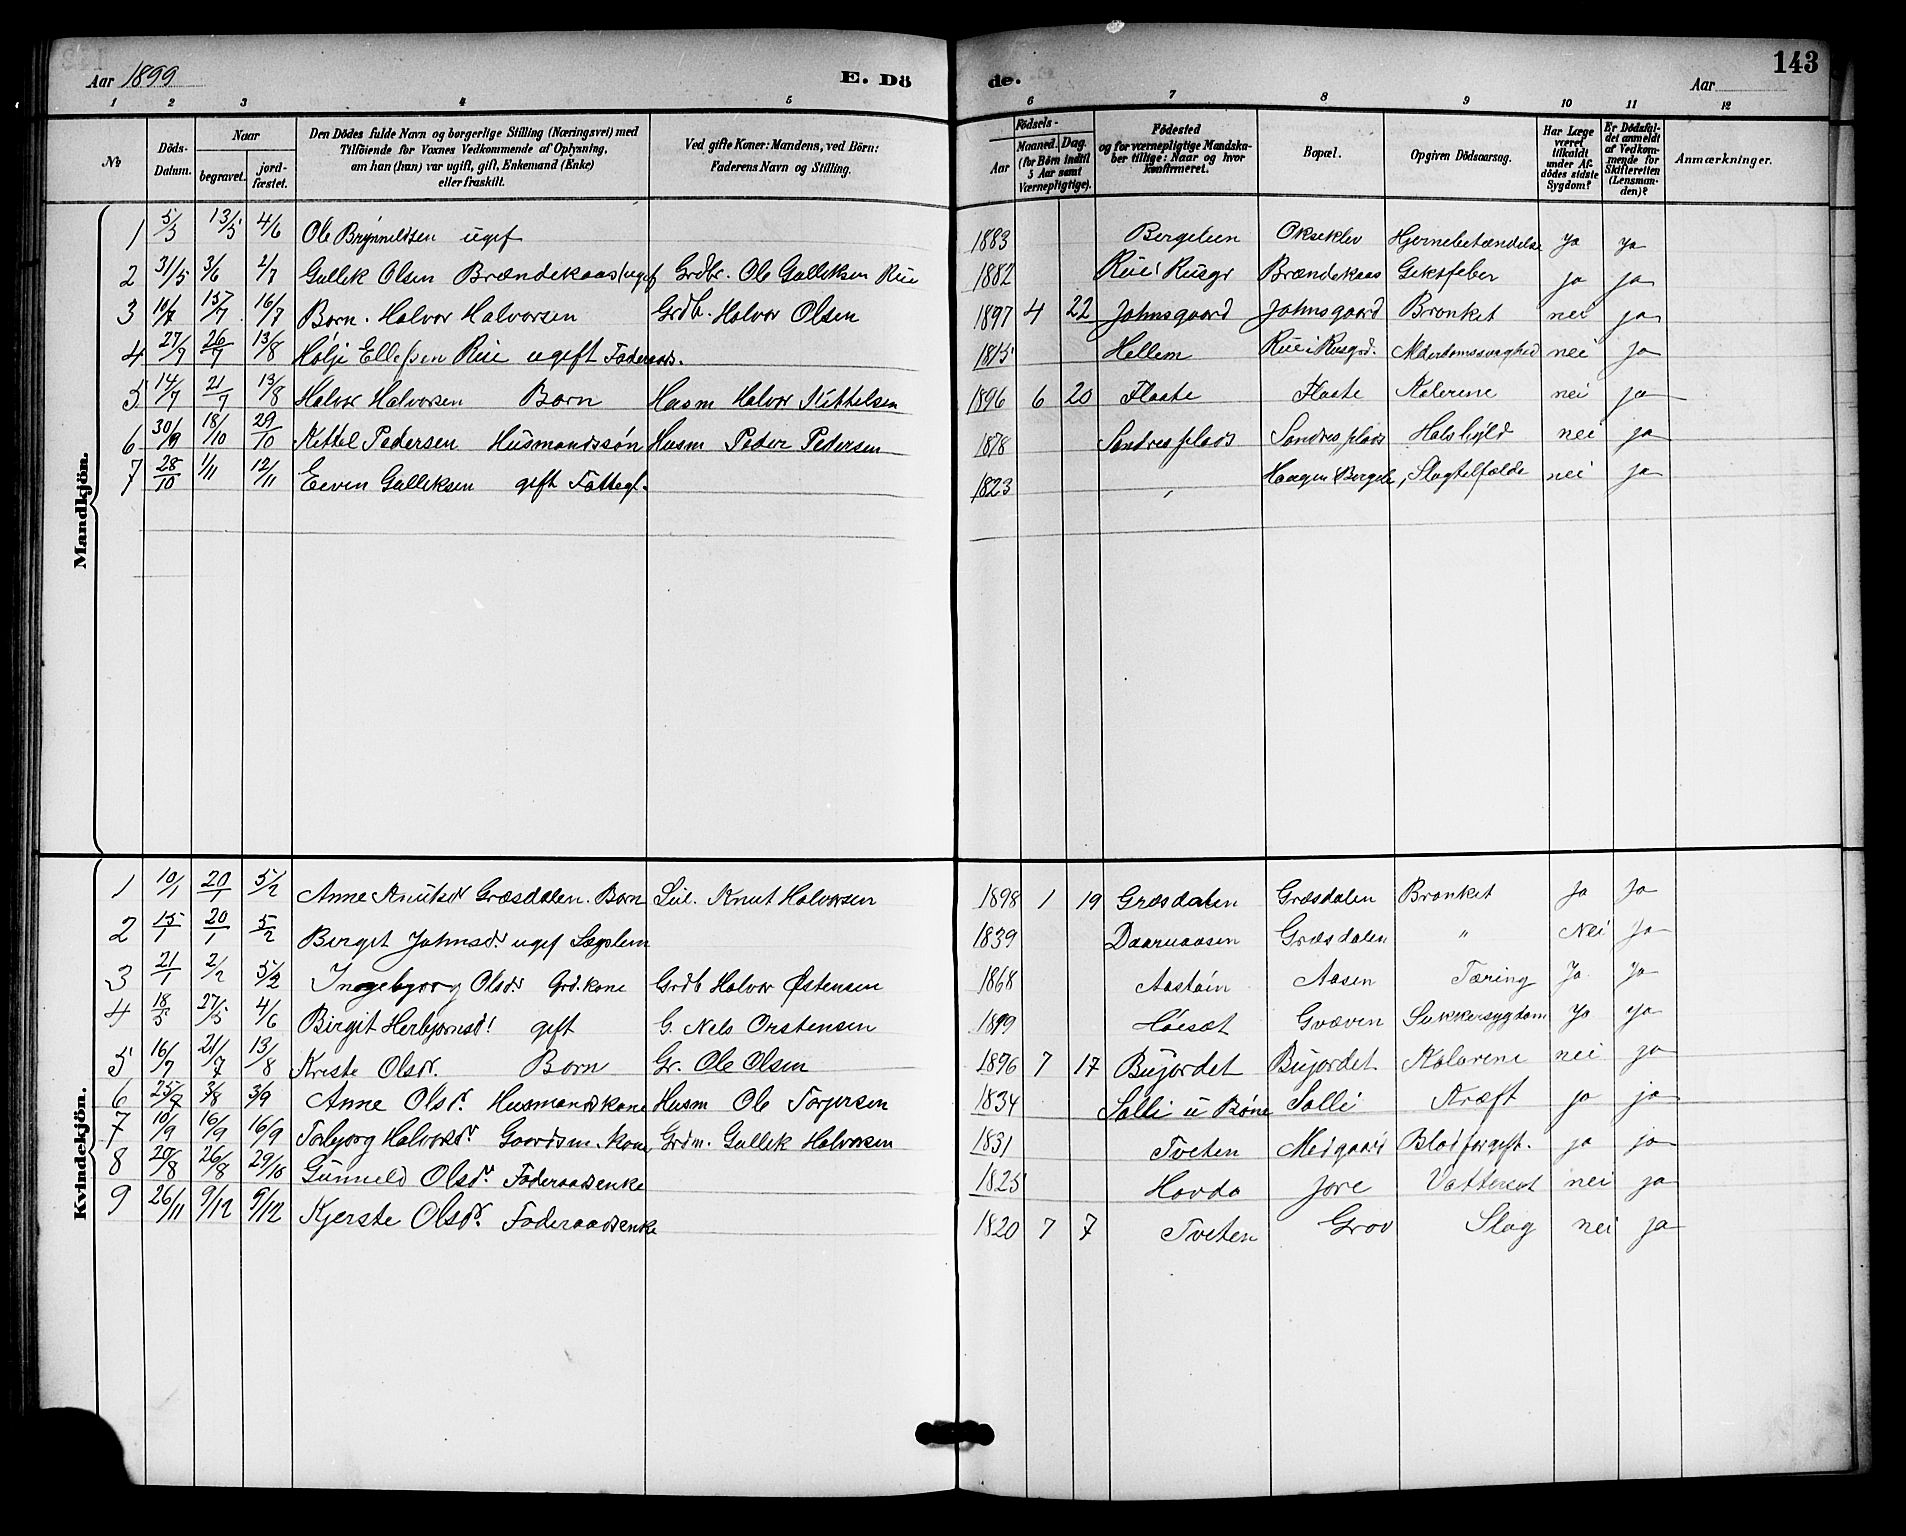 143
Aar 1899 E. Dö de. Aar
1 2 3 4 5 6 7 8 9 10 11 12
No
Döds-Datum.
Naar begravet. jordfæstet.
Den Dödes fulde Navn og borgerlige Stilling (Næringsvei) med Tilföiende for Voxnes Vedkommende af Oplysning, om han (hun) var ugift, gift, Enkemand (Enke) eller fraskilt.
Ved gifte Koner: Mandens, ved Börn: Faderens Navn og Stilling.
Födsels-
Aar Maaned. Dag. (for Börn indtil 5 Aar samt Værnepligtige).
Födested og for værnepligtige Mandskaber tillige: Naar og hvor konfirmeret.
Bopæl.
Opgiven Dödsaarsag.
Har Læge været tilkaldt under Afdödes sidste Sygdom?
Er Dödsfaldet anmeldt af Vedkommende for Skifteretten (Lensmanden)?
Anmærkninger.
Mandkjön.
1 5/5 13/5 4/6 Ole Brynnildsen ugif 1883 Bergelien Okseklev Hjernebetændelse ja ja
2 31/5 3/6 2/7 Gullek Olsen Brændekaas ugif Grdbr. Ole Galleksen Rue 1882 Rue i Rusgr Brændekaas Giktfeber ja ja
3 10/7 15/7 16/7 Barn. Halvor Halvorsen Grdb. Halvor Olsen 1897 4 22 Johnsgaard Johnsgaard Bronket nei ja
4 26/7 13/8 Hølje Ellefsen Rue ugift Føderaads. 1815 Hellem Rue i Rusgrd. Alderdomssvaghed nei ja
5 14/7 21/7 13/8 Halvor Halvorsen Barn Husm Halvor Kittelsen 1896 6 20 Flaate Flaate Kolerine nei ja
6 30/9 18/10 29/10 Kittel Pedersen Husmandssøn Husm Peder Pedersen 1878 Søndres plads Søndres plads Halsbyld nei ja
7 28/10 1/11 12/11 Eeven Galleksen gift Fattegl. 1823 Haagen Slagtilfælde nei ja
Kvindekjön.
1 10/1 20/1 5/2 Anne Knutsdr Græsdalen. Barn Knut Halvorsen 1898 1 19 Græsdalen Græsdalen Bronket Ja Ja
2 15/1 20/1 5/2 Birget Johnsdr. ugif Lægslem 1839 Daaruaasen Græsdalen " Nei Ja
3 21/1 2/2 5/2 Ingebjørg Olsdr Grd.kone Grdb Halvor Østensen 1868 Aastøin Aasen Tæring Ja Ja
4 18/5 27/5 4/6 Birgit Herbjørnsdr gift G. Nels Orstensen Høesæt Gvæven Sukkersygdom Ja ja
5 16/7 21/7 13/8 Kriste Olsdr. Barn Gr. Ole Olsen 1896 7 17 Bujordet Bujordet Kolorine nei ja
6 25/7 3/8 3/9 Anne Olsdr. Husmandskone Husm Ole Torjersen 1834 Solli u Bøne Solli Kræft ja ja
7 10/9 16/9 16/9 Torbjørg Halvorsdr Gaardsm. kone Grdm. Gullek Halvorsen 1831 Tveten Medgaard Blodforgift. ja ja
8 20/8 26/8 29/10 Gunneld Olsdr. Føderaadsenke 1825 Hovda Jore Vattersot nei ja
9 26/11 9/12 9/12 Kjerste Olsdr. Føderaadsenke 1820 7 7 Tveten Grov Slag nei ja